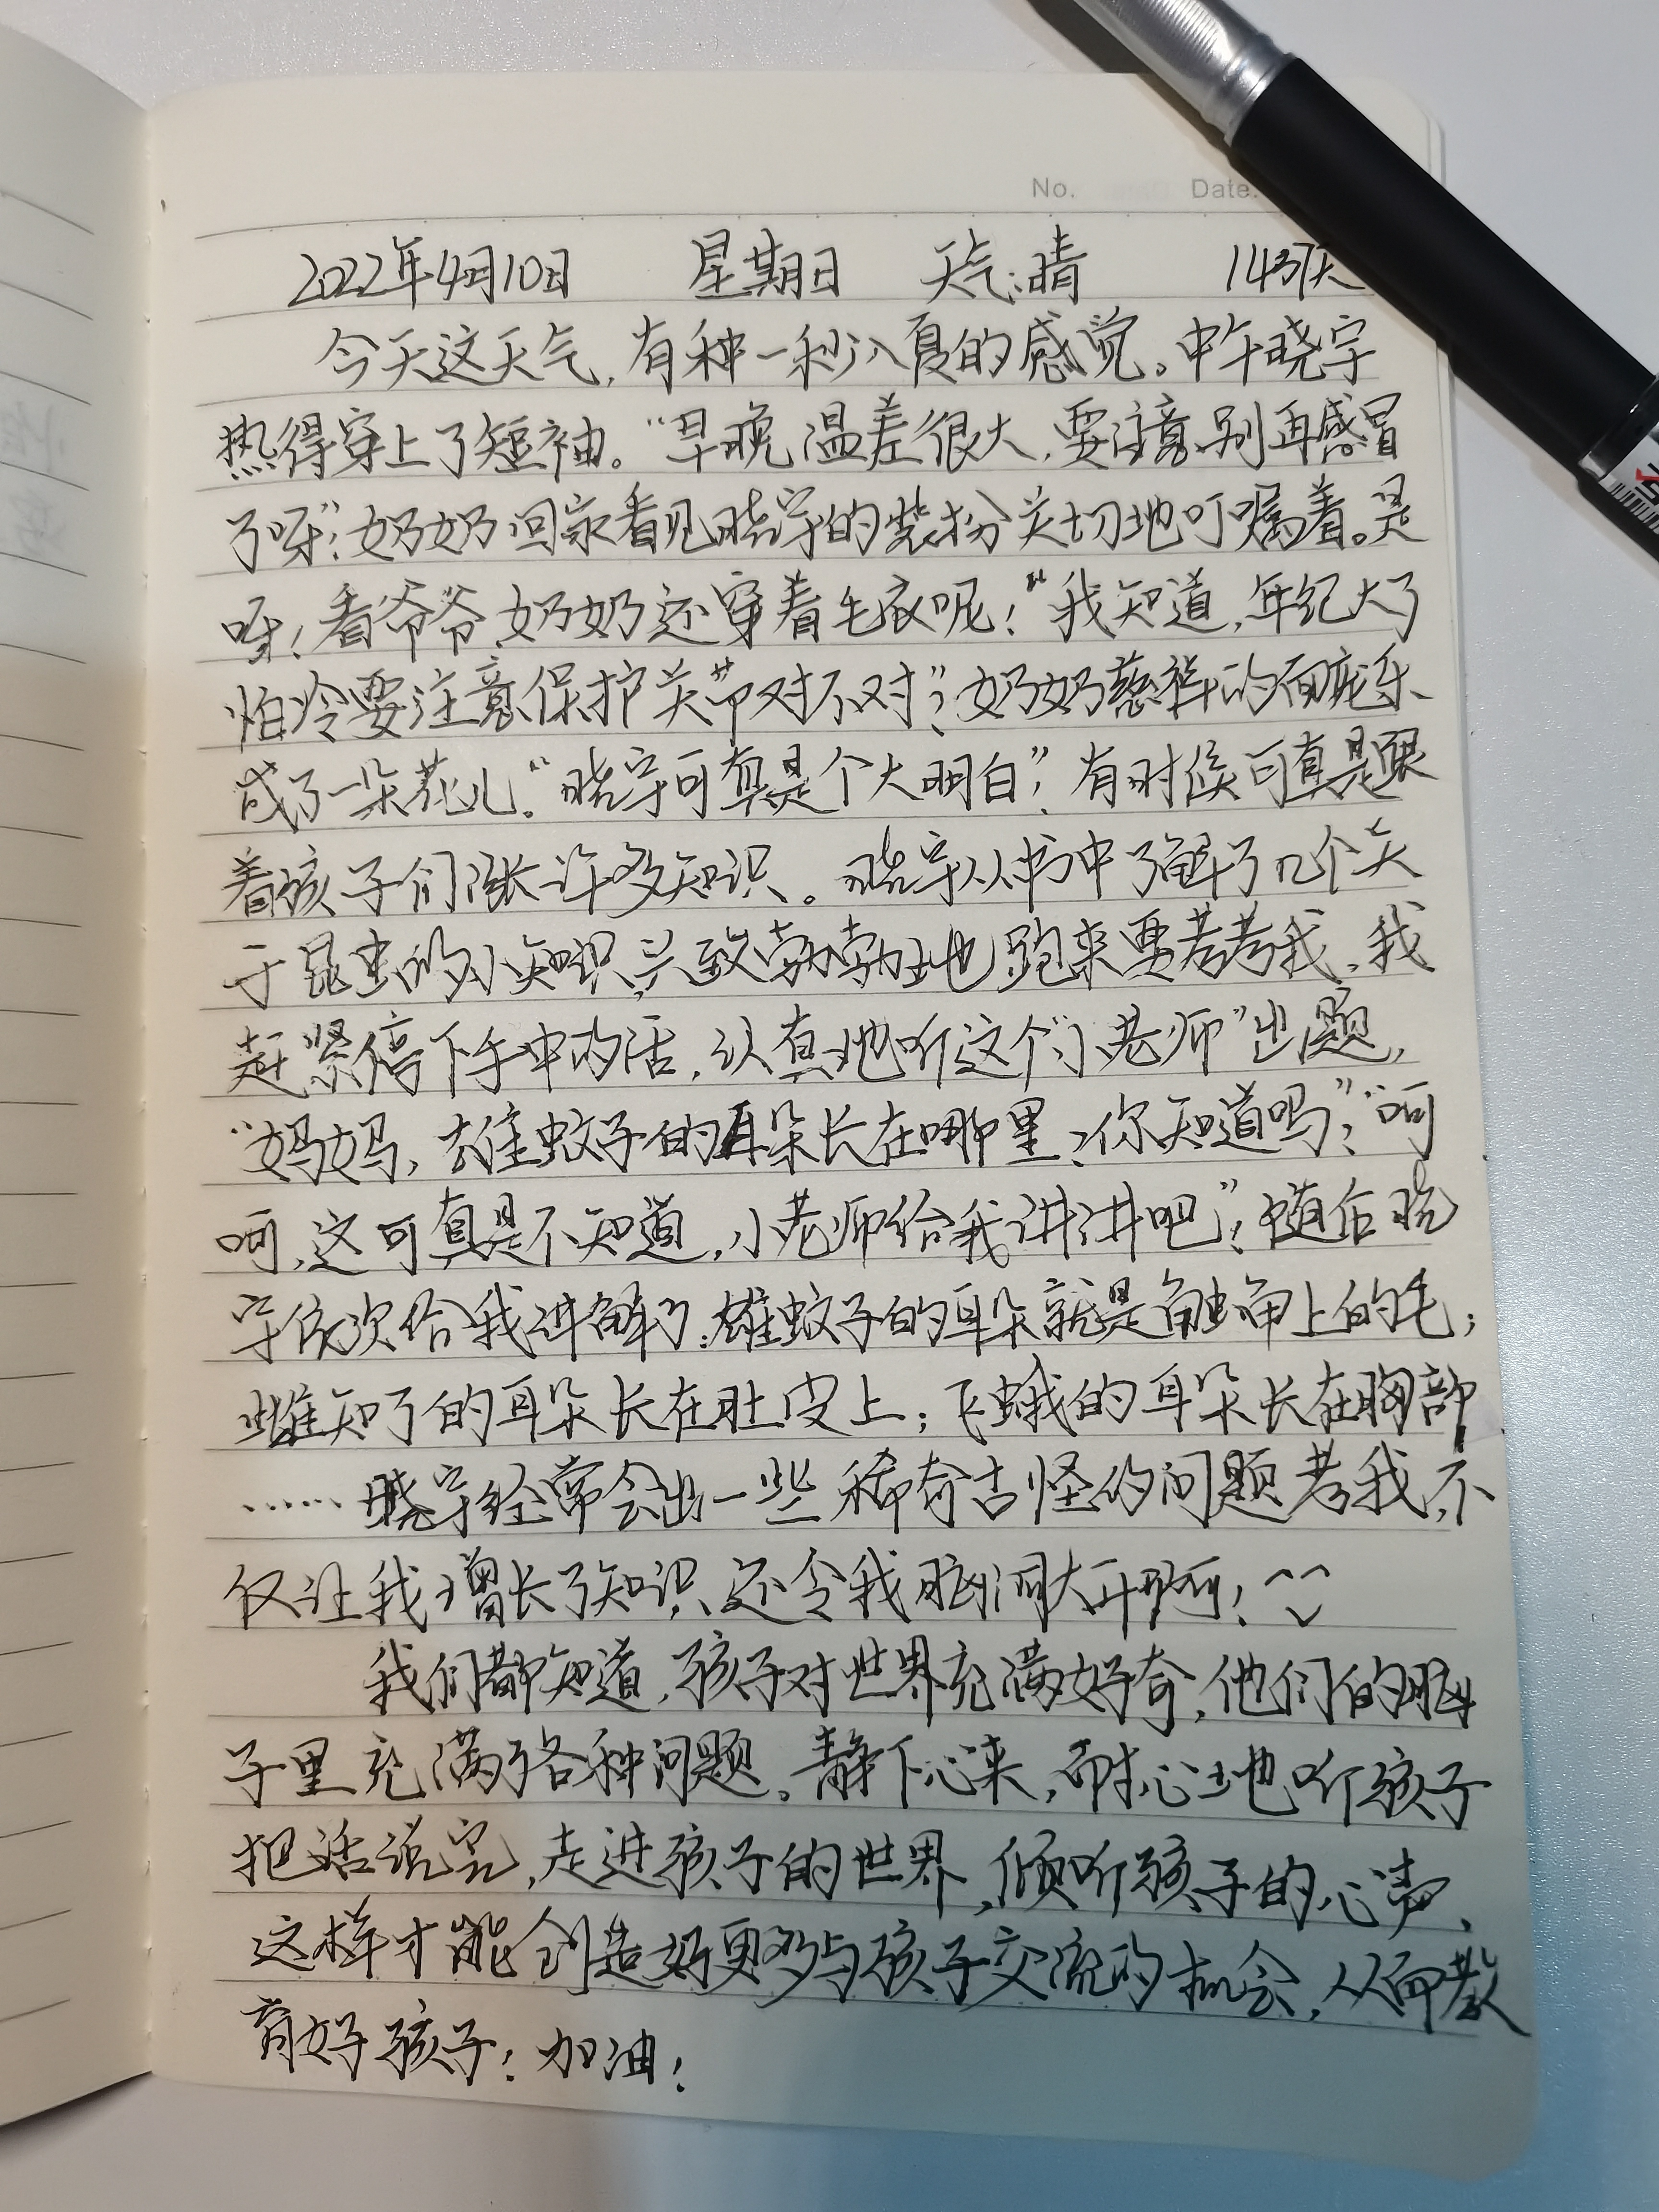 No. Date:
2022年4月10日 星期日 天气:晴 1437天
今天这天气,有种一秒入夏的感觉。中午晓宇
热得穿上了短袖。“早晚温差很大,要注意,别再感冒
了呀”!奶奶回家看见晓宇的装扮关切地叮嘱着。是
呀!看爷爷、奶奶还穿着毛衣呢!“我知道,年纪大了
怕冷要注意保护关节对不对”?奶奶慈祥的面庞乐
成了一朵花儿。“晓宇可真是个大明白”!有时候可真是跟
着孩子们涨许多知识。晓宇从书中了解了几个关
于昆虫的小知识,兴致勃勃地跑来要考考我,我
赶紧停下手中的活,认真地听这个“小老师”出题,
“妈妈,雄蚊子的耳朵长在哪里,你知道吗”?“呵
呵,这可真是不知道,小老师给我讲讲吧”!随后晓
宇依次给我讲解了:雄蚊子的耳朵就是触角上的毛;
雌知了的耳朵长在肚皮上;飞蛾的耳朵长在胸部
……晓宇经常会出一些稀奇古怪的问题考我,不
仅让我增长了知识、还令我脑洞大开啊!
我们都知道,孩子对世界充满好奇,他们的脑
子里充满了各种问题。静下心来,耐心地听孩子
把话说完,走进孩子的世界,倾听孩子的心声、
这样才能创造好更多与孩子交流的机会,从而教
育好孩子!加油!